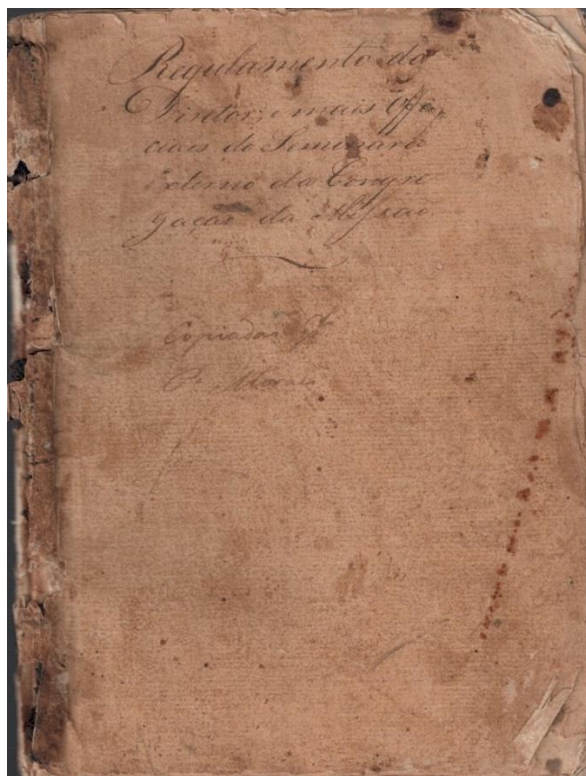 Regulamento do
Diretor, e mais offi
ciaes do Seminario
externo da Congre
gaçaõ da Missaõ
Copiados
P. Moraes